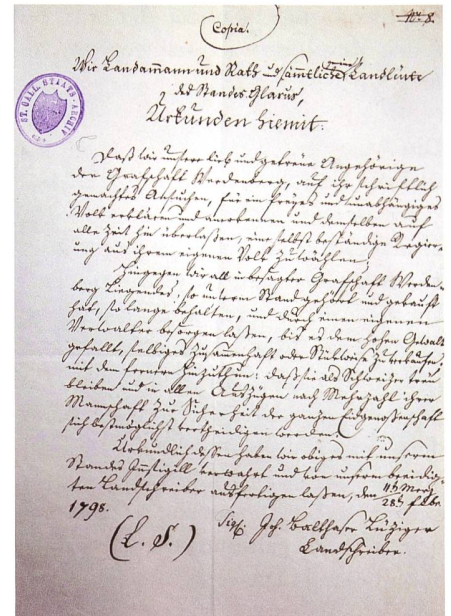 No. 8.
Copia.
Wir Landamann und Rath und sämtliche Landleüte
des Standes Glarus,
Urkunden hiemit:
ST. GALL. STAATS-ARCHIV
Daß wir unsere lieb und getreüe Angehörige
der Grafschaft Werdenberg, auf ihr schriftlich
gemachtes Ansuchen, für ein freyes und unabhängiges
Volk erklären und anerkennen und denselben auf
alle Zeit hin überlaßen, eine selbst beständige Regier-
ung aus ihrem eigenen Volk zu wählen;
Hingegen wir all in besagter Grafschaft Werden-
berg Liegendes, so unserm Stand gehört und gekauft
hat, so lange behalten, und durch einen eigenen
Verwalter besorgen laßen, bis es dem hohen Gewalt
gefallt, selbiges Zusamenhaft oder Stückweise zu
mit dem fernern daß sie als Schweizer treü
bleiben und in allen Auszügen nach Mehrzahl ihrer
Manschaft zur Sicherheit der ganzen Eidgenoßenschaft
sich bestmöglichst vertheidigen werden.
Urkundlich deßen haben wir obiges mit unserm
Standes Insigill verwahrt und von unserm beeidig-
ten Landschreiber ausfertigen laßen, den 11ten Merz
28. Febr.
1798.
(L. S.)
Sig. Joh. Balthasar
Landschreiber.